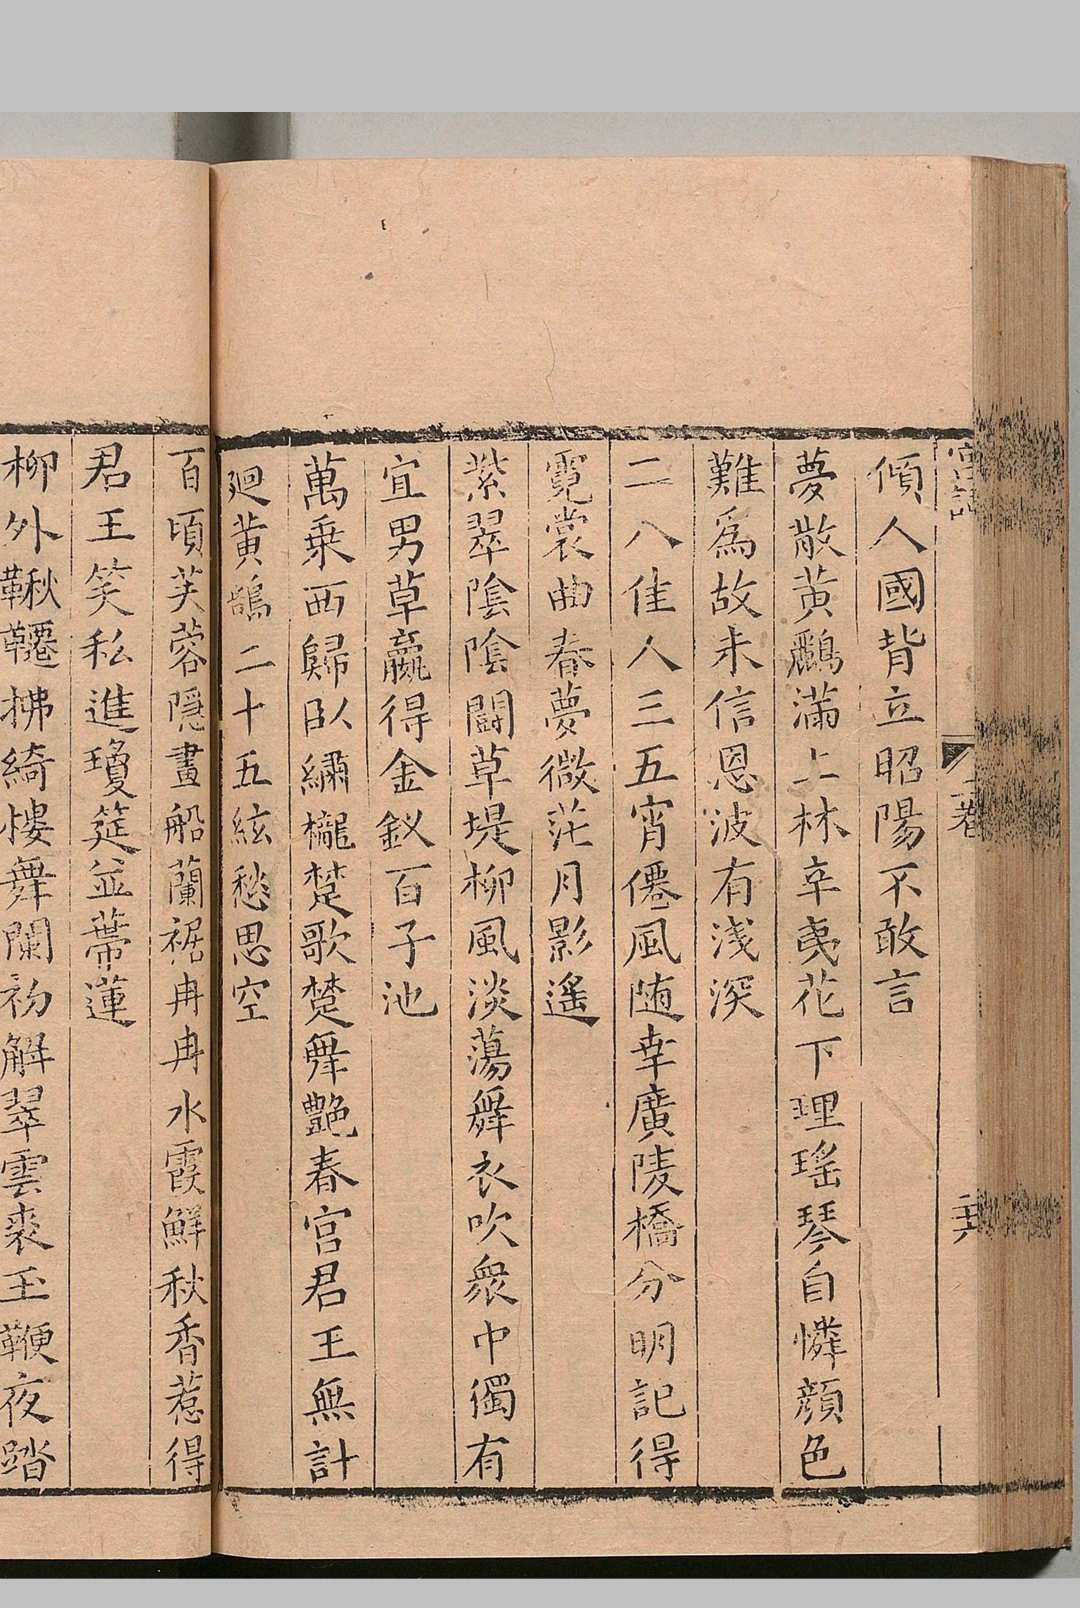 宮詞 上卷 二十六
傾人國背立昭陽不敢言
夢散黃鸝滿上林辛夷花下理瑤琴自憐顏色
難爲故未信恩波有淺深
二八佳人三五宵僊風随幸廣陵橋分明記得
霓裳曲春夢微茫月影遙
紫翠陰陰鬪草堤柳風淡蕩舞衣吹衆中獨有
宜男草贏得金釵百子池
萬乗西歸臥繡櫳楚歌楚舞艷春宮君王無計
廻黃鵠二十五絃愁思空
百頃芙蓉隱畫船蘭裾冉冉水霞鮮秋香惹得
君王笑私進瓊筵並蔕蓮
柳外鞦韆拂綺樓舞闌初解翠雲裘玉鞭夜踏